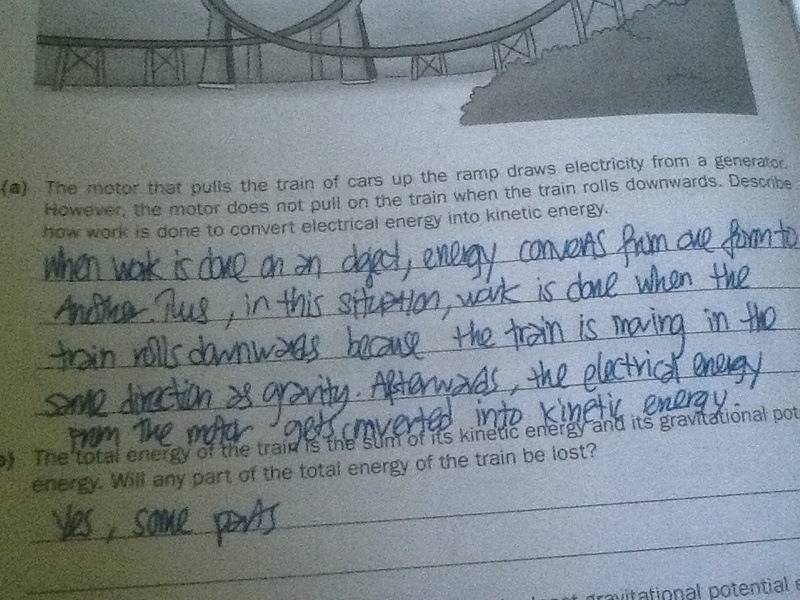 (a) The motor that pulls the train of cars up the ramp draws electricity from a generator.
However, the motor does not pull on the train when the train rolls downwards. Describe
how work is done to convert electrical energy into kinetic energy.
When work is done on an object, energy converts from one form to
Another. Thus, in this situation, work is done when the
train rolls downwards because the train is moving in the
same direction as gravity. Afterwards, the electrical energy
from the motor gets converted into kinetic energy.
The total energy of the train is the sum of its kinetic energy and its gravitational pot
energy. Will any part of the total energy of the train be lost?
Yes, some parts
gravitational potential